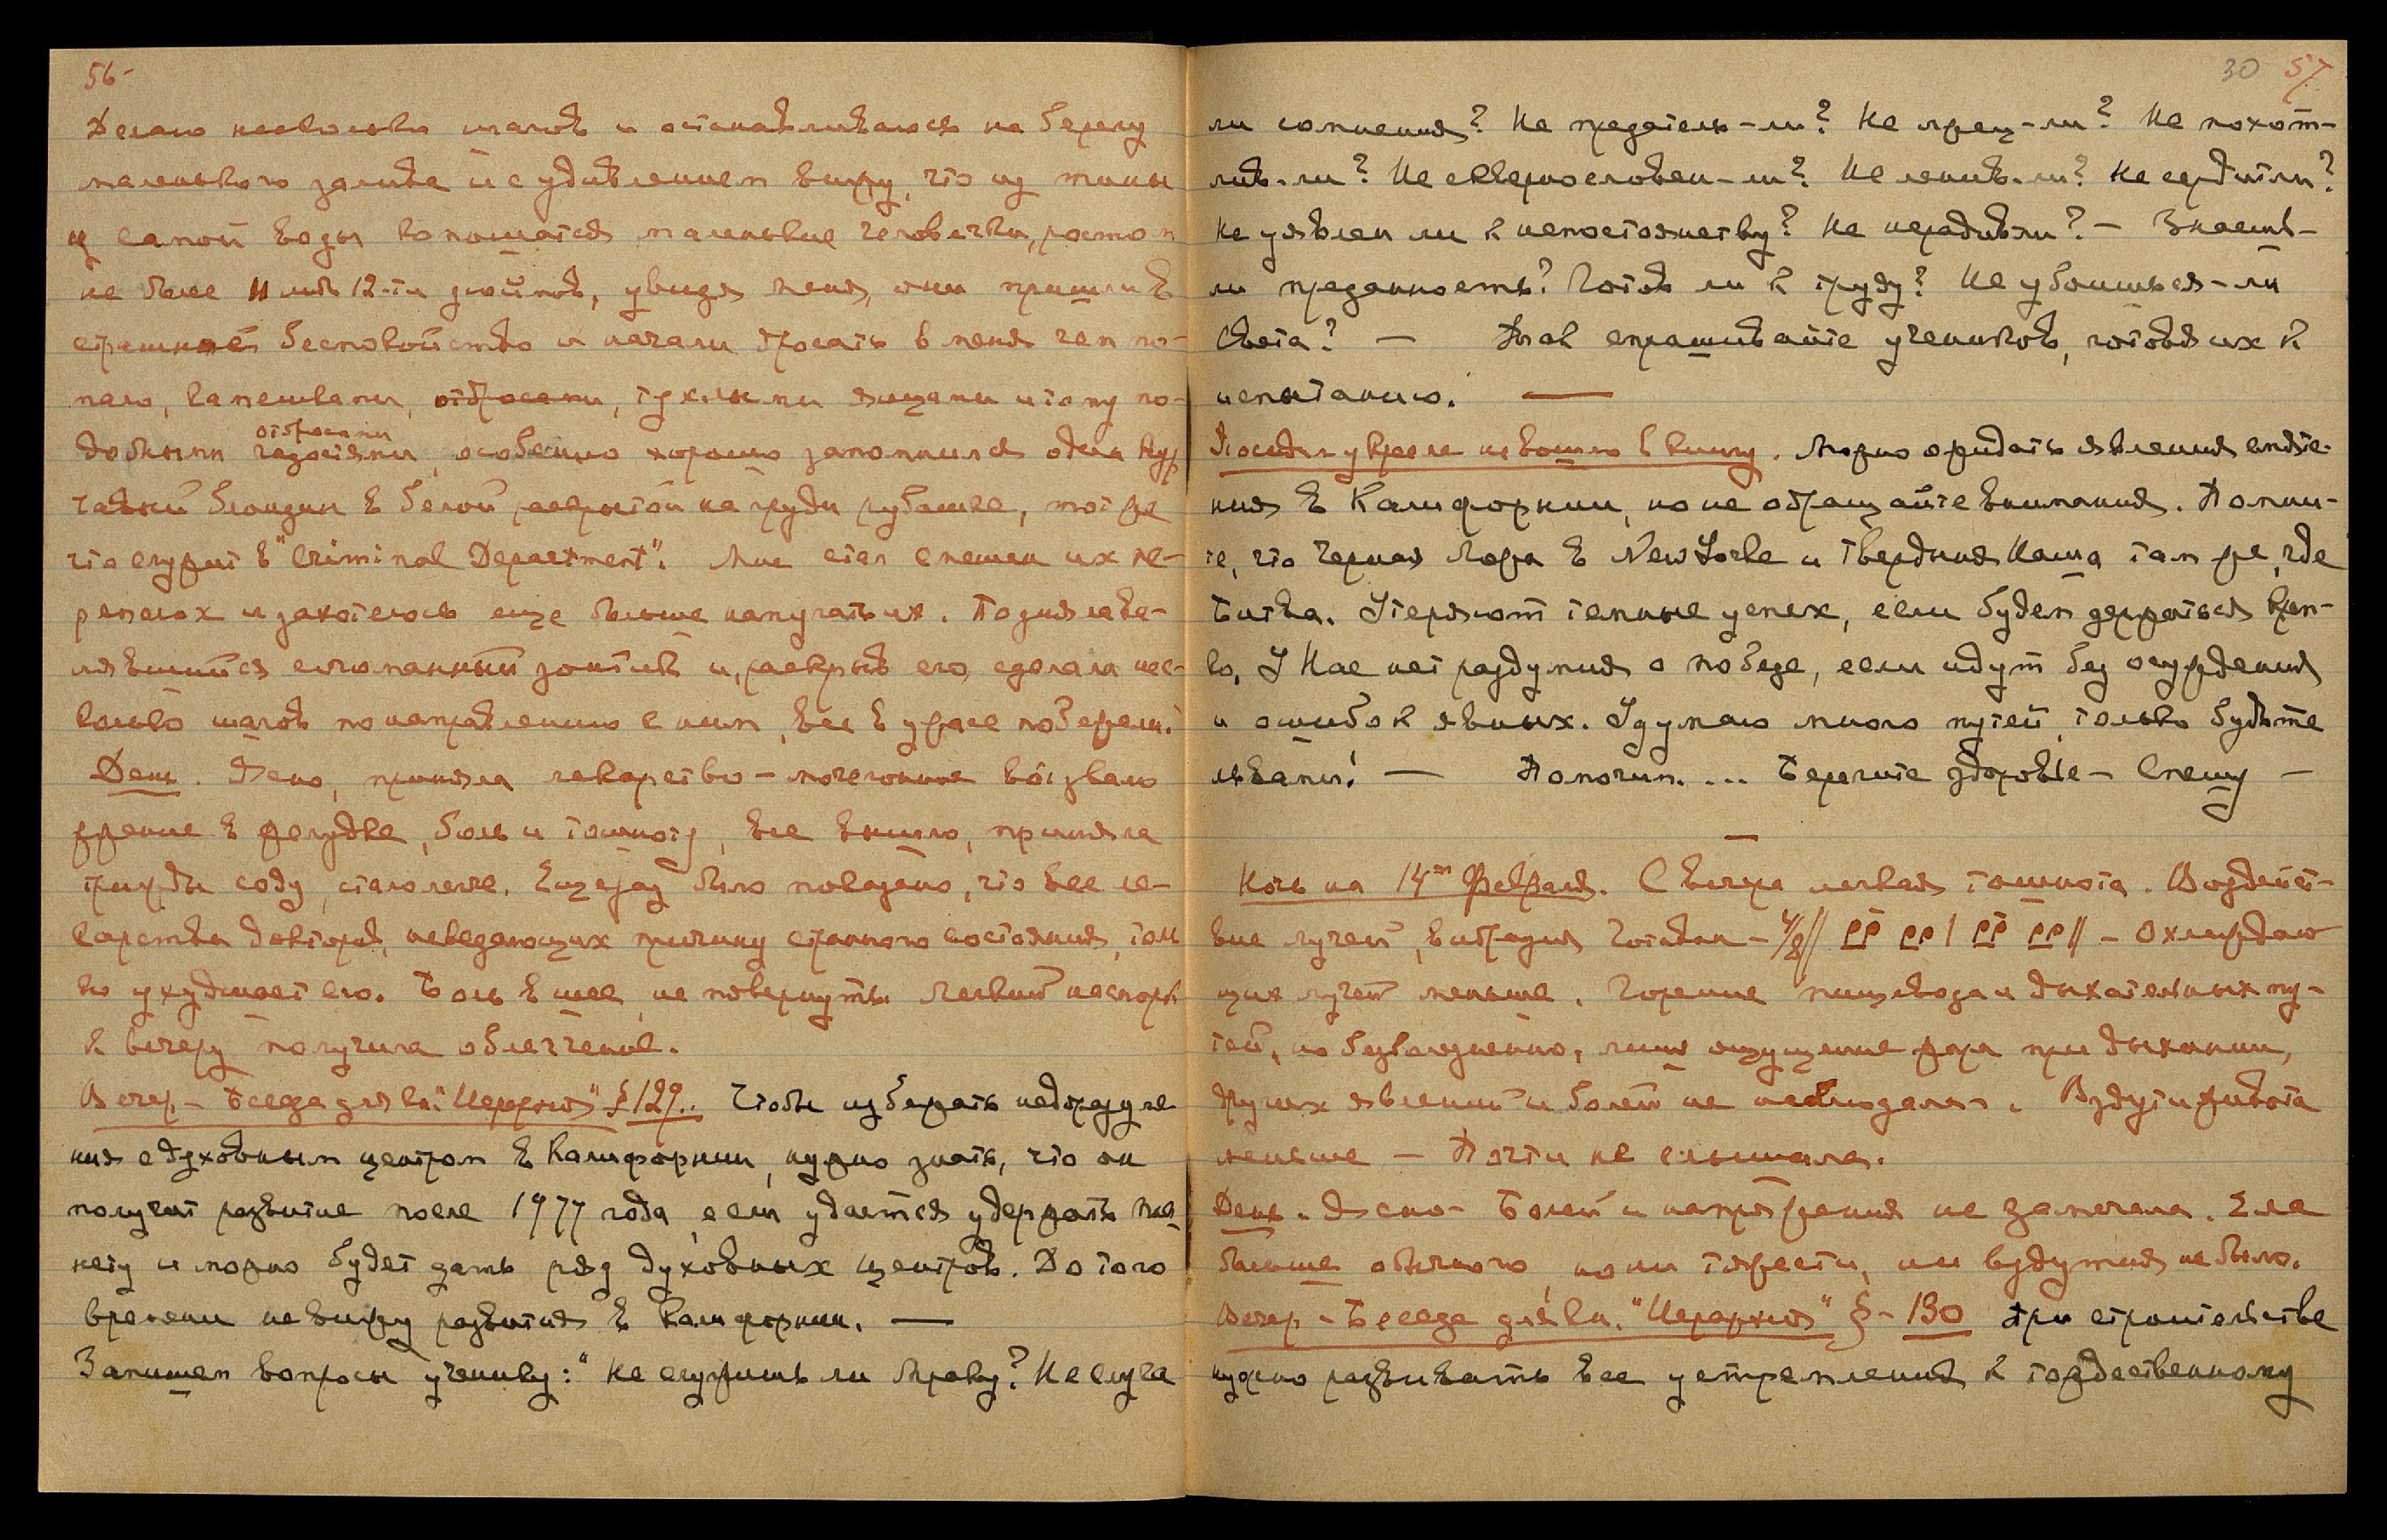 56-
Делаю несколько шагов и останавливаюсь на берегу
маленького залива и с удивлением вижу, что из тины
из самой воды копошатся маленькие человечки, ростом
не более 11 либо 12-ти дюймов, увидя меня, они пришли в
страшное беспокойство и начали бросать в меня чем по-
пало, камешками, отбросами, тухлыми яйцами и тому по-
добными отбросами гадостями, особенно хорошо запомнился один кур
чавый блондин в белой раскрытой на груди рубашке, тот же
что служит в "Criminal Department". Мне стал смешон их пе-
реполох и захотелось еще больше напугать их. Подняла ва-
лявшийся сломанный зонтик и, раскрыв его, сделала нес-
колько шагов по направлению к ним, все в ужасе побежали.
День. Ясно, приняла лекарство – мочегонное вызвало
жжение в желудке, боль и тошноту, все вышло, приняла
трижды соду, стало легче. Еще раз было показано, что все ле-
карства доктора, неведающих причину странного состояния, толь
ко ухудшает его. Боль в шее, не повернуть. Легкий насморк
К вечеру получила облегчение.
Вечер – Беседа для кн. "Иерархия" § 129.. Чтобы избежать недоразуме
ния с духовным центром в Калифорнии, нужно знать, что он
получит развитие после 1977 года, если удастся удержать пла
нету и можно будет дать ряд духовных центров. До того
времени не вижу развития в Калифорнии. —
Запишем вопросы ученику: "Не служишь ли мраку? Не слуга
30 57
ли сомнения? Не предатель-ли? Не лжец-ли? Не похот-
лив-ли? Не сквернословен-ли? Не ленив-ли? Не сердит ли?
Не уявлен ли к непостоянству? Не нерадив ли? – Знаешь-
ли преданность? Готов ли к труду? Не убоишься-ли
Света? — Так спрашивайте учеников, готовя их к
испытанию. —
Беседа у Кресла не вошло в книгу. Можно ожидать явления смяте-
ния в Калифорнии, но не обращайте внимания. Помни-
те, что Черная Ложа в New Yorke и Твердыня Наша там же, где
битва. Утеряют темные успех, если будем держаться креп-
ко. У Нас нет раздумия о победе, если идут без осуждения
и ошибок явных. Удумаю много путей, только будьте
львами! — Помогим. ... Берегите здоровье – Спешу –
—
Ночь на 14ое Февраля. С вечера легкая тошнота. Воздейст-
вие лучей, вибрация Готаван – 4/8 – Охлаждаю
щих лучей меньше. Горение пищевода и дыхательных пу-
тей, но безболезненно, лишь ощущение жара при дыхании,
других явлений и болей не наблюдала. Вздутие живота
меньше – Почти не слышала.
День. Ясно – Болей и напряжения не замечала. Ела
больше обычного, но ни тяжести, ни вздутия не было.
Вечер – Беседа для кн. "Иерархия" § – 130 При строительстве
нужно развивать все устремления к тождественному